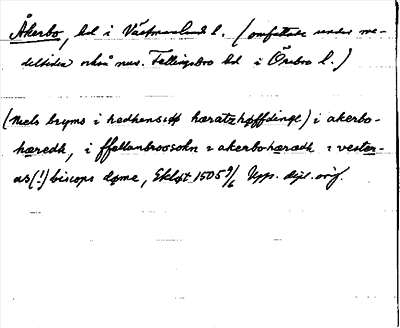 Åkerbo, hd i Västmanlands l. (omfattade under me-
deltiden också nuv. Fellingsbro hd i Örebro l.)
(Niels bryms i hedhensitt hæratzhøffdinge) i akerbo-
hæredh, i ffellanbrossokn i akerbohæradh i vester-
as(!) biscops døme, Ekløt 1505 9/6 Upp. dipl. orig.